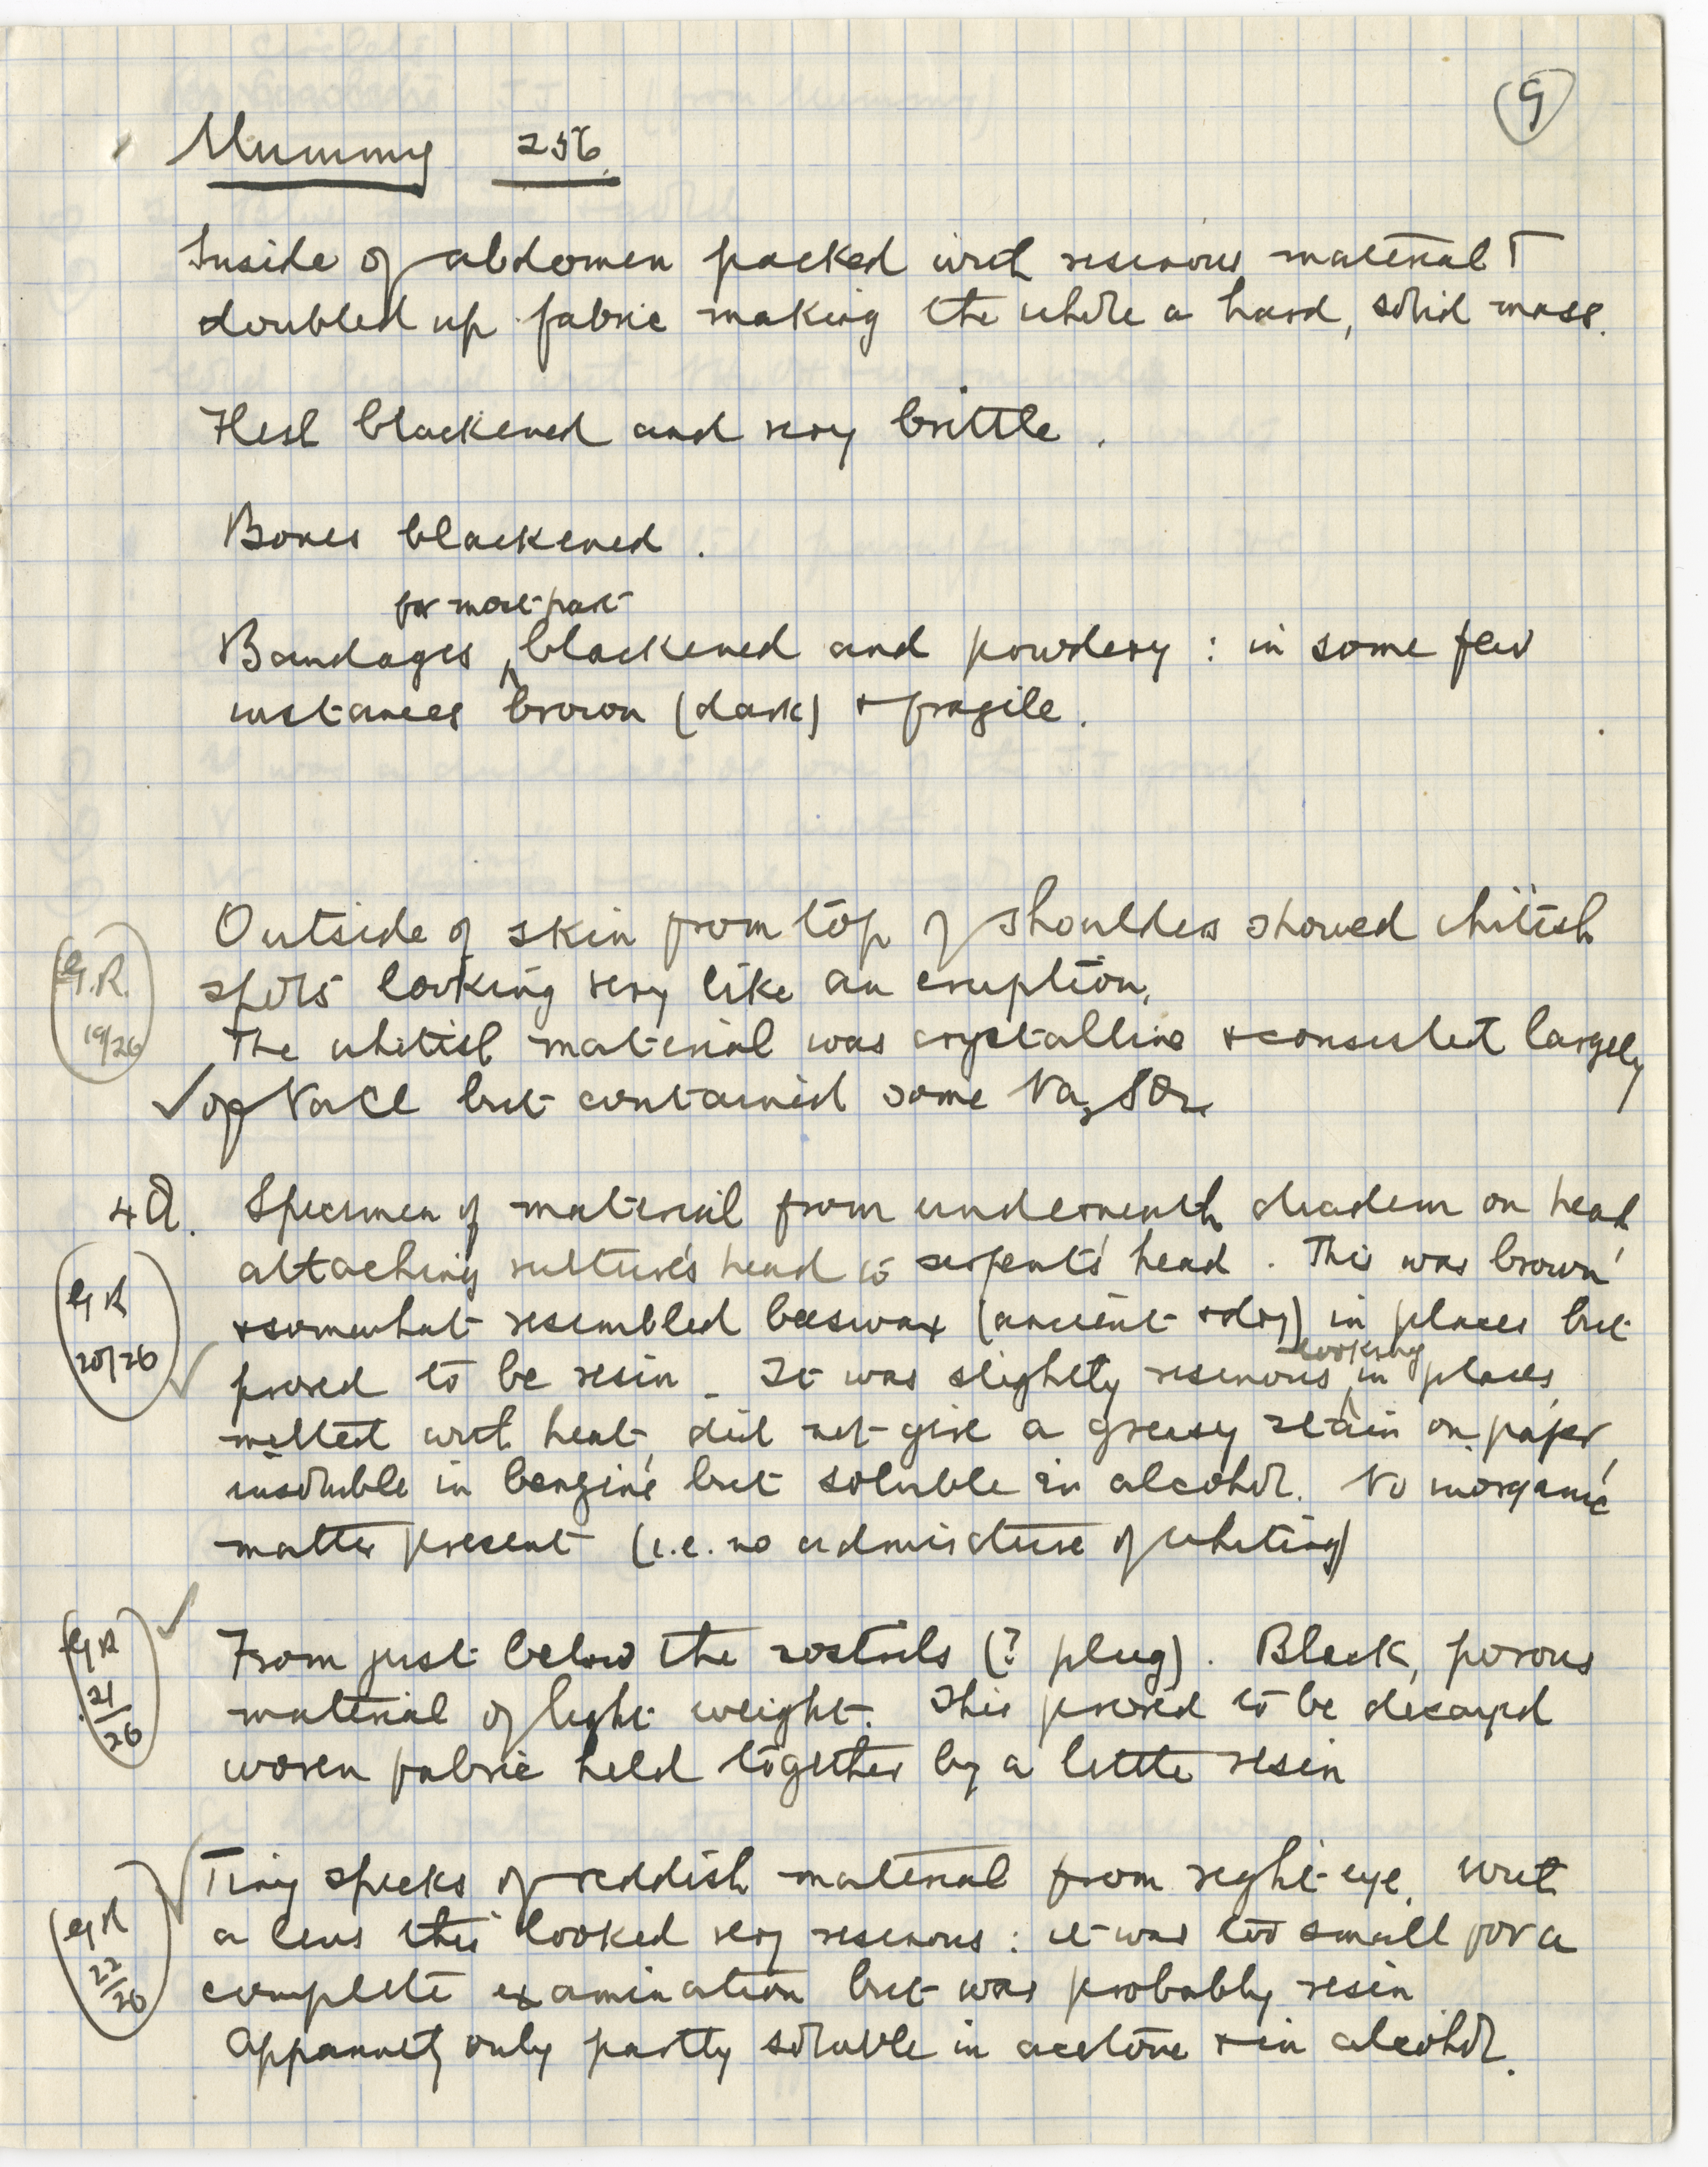 9
Mummy 256
Inside of abdomen packed with resinous material &
doubled up fabric making the whole a hard, solid mass.
Flesh blackened and very brittle.
Bones blackened.
for most part
Bandages ^ blackened and powdery : in some few
instances brown (dark) & fragile.
Outside of skin from top of shoulders showed whitish
G.R. spots looking very like an eruption.
19/26 The whitish material was crystalline & consisted largely
✓ of NaCl but contained some Na2SO4
4O. Specimen of material from underneath diadem on head
attaching vulture's head to serpent's head. This was brown
GR & somewhat resembled beeswax (ancient & dry) in places but
looking
20/26 ✓ proved to be resin. It was slightly resinous ^ in places,
melted with heat, did not give a greasy stain on paper,
insoluble in benzine but soluble in alcohol. No inorganic
matter present (i.e. no admixture of whiting)
GR ✓ From just below the nostrils (? plug). Black, porous
21/26 material of light weight. This proved to be decayed
woven fabric held together by a little resin
✓ Tiny specks of reddish material from right eye. With
GR a lens this looked very resinous : it was too small for a
22/26 complete examination but was probably resin
Apparently only partly soluble in acetone & in alcohol.